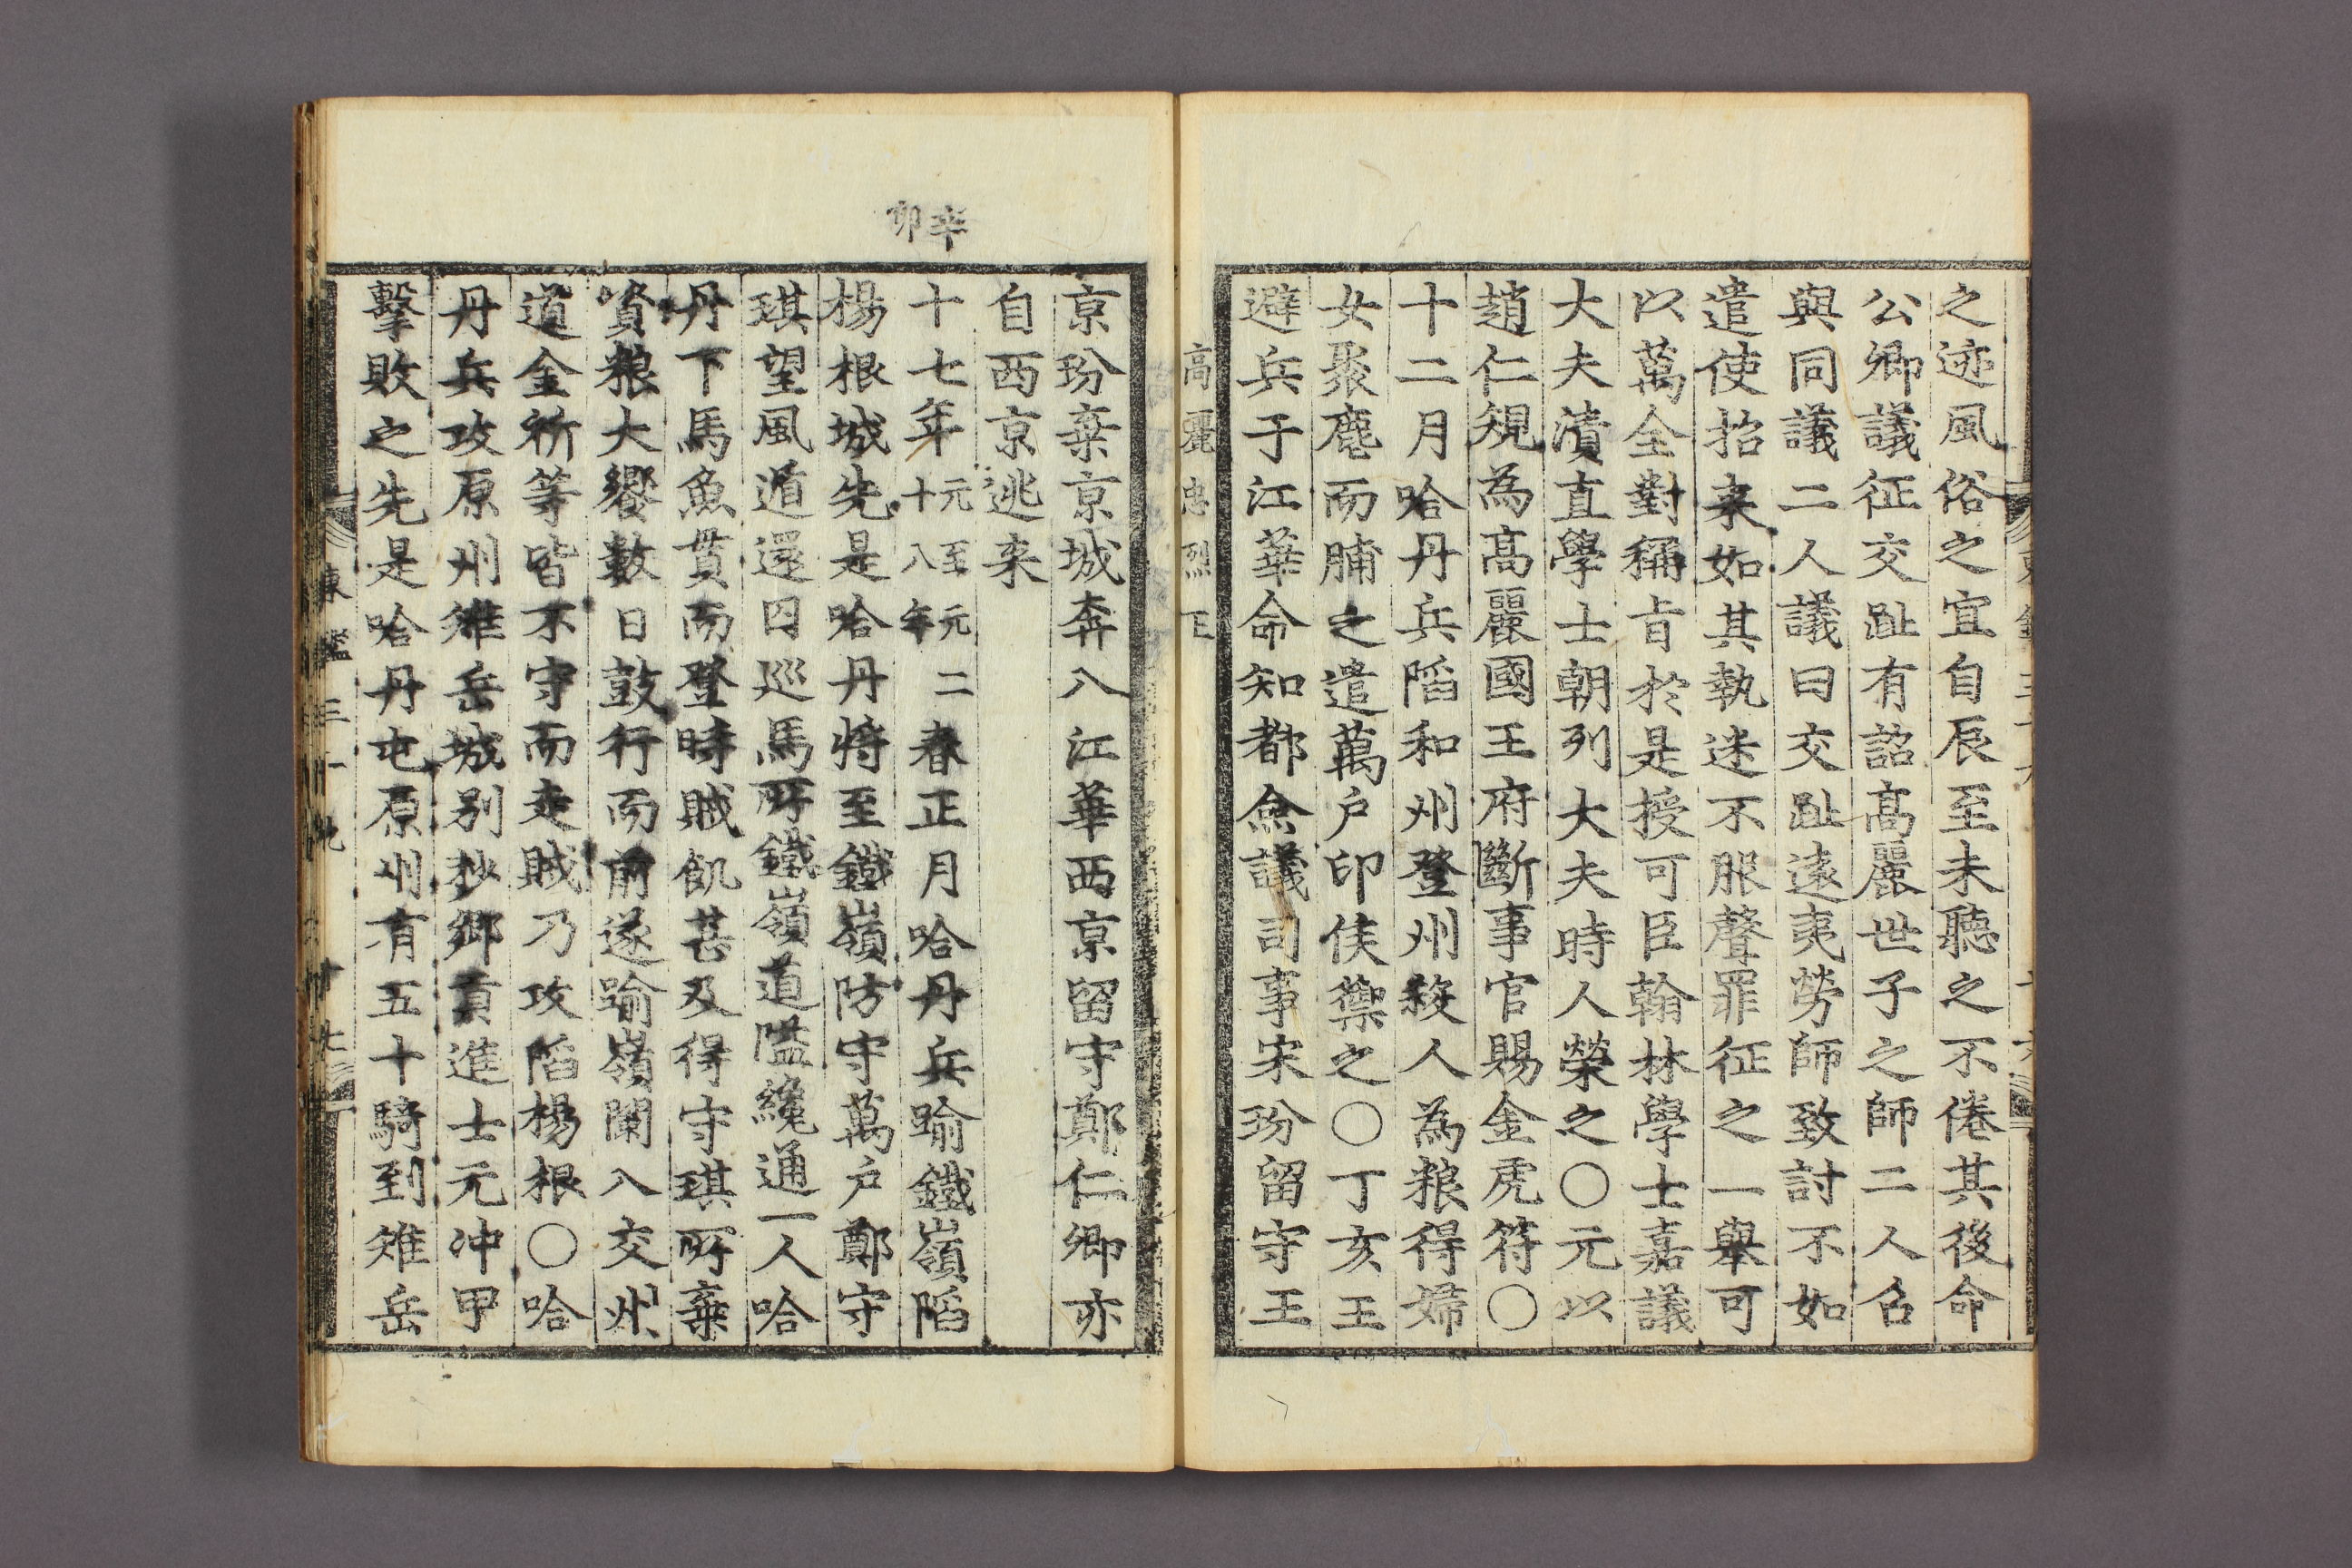 之迹風俗之宜自辰至未聽之不倦其後命
公卿議征交趾有詔高麗世子之師二人召
與同議二人議曰交趾遠夷勞師致討不如
遣使招来如其執迷不服聲罪征之一擧可
以萬全對稱旨於是授可臣翰林學士嘉議
大夫漬直學士朝列大夫時人榮之〇元以
趙仁規為高麗國王府斷事官賜金虎符〇
十二月哈丹兵陷和州登州殺人為粮得婦
女聚麀而脯之遣萬戶印侯禦之〇丁亥王
避兵于江華命知都僉議司事宋玢留守王
高麗忠烈王
京玢棄京城奔入江華西京留守鄭仁卿亦
自西京逃来
辛卯
十七年元至元二十八年春正月哈丹兵踰鐵嶺陷
楊根城先是哈丹將至鐵嶺防守萬戶鄭守
琪望風遁還囙巡馬所鐵嶺道隘纔通一人哈
丹下馬魚貫而登時賊飢甚及得守琪所棄
資粮大饗數日鼓行而前遂踰嶺闌入交州
道金祈等皆不守而走賊乃攻陷楊根〇哈
丹兵攻原州雉岳城别抄鄉貢進士元冲甲
擊敗之先是哈丹屯原州有五十騎到雉岳
東鑑三十九 十七